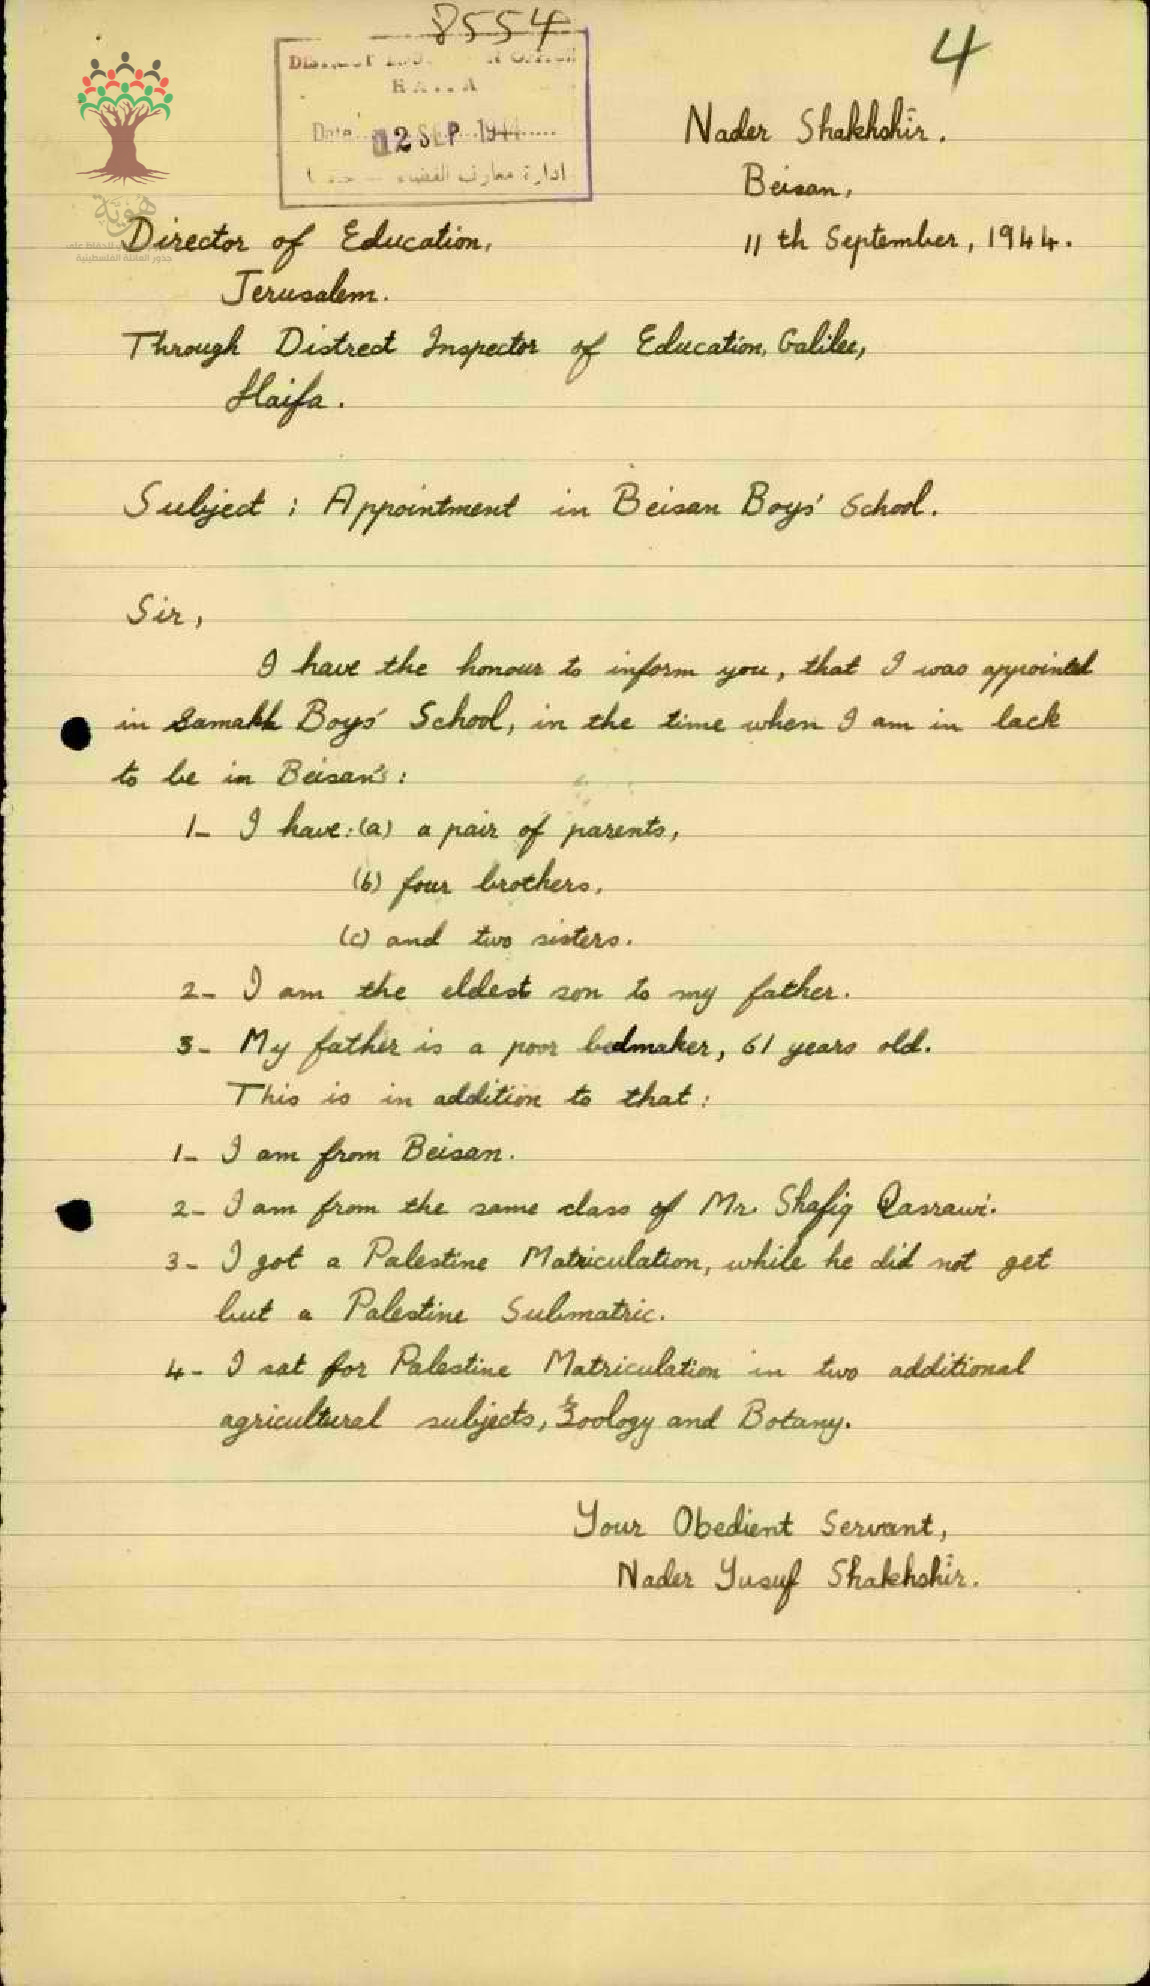 8554
4
DISTRICT OFFICE
Date 12 SEP 1944
ادارة معارف
هوية
جذور العائلة الفلسطينية
Nader Shakhshir.
Beisan,
11 th September, 1944.
Director of Education,
Jerusalem.
Through Distrect Inspector of Education, Galilee,
Haifa.
Subject : Appointment in Beisan Boys' School.
Sir,
I have the honour to inform you, that I was appointed
in Samakh Boys' School, in the time when I am in lack
to be in Beisan's :
1- I have : (a) a pair of parents,
(b) four brothers,
(c) and two sisters.
2- I am the eldest son to my father.
3- My father is a poor bedmaker, 61 years old.
This is in addition to that :
1- I am from Beisan.
2- I am from the same class of Mr. Shafiq Qasrawi.
3- I got a Palestine Matriculation, while he did not get
but a Palestine Submatric.
4- I sat for Palestine Matriculation in two additional
agricultural subjects, Zoology and Botany.
Your Obedient Servant,
Nader Yusuf Shakhshir.